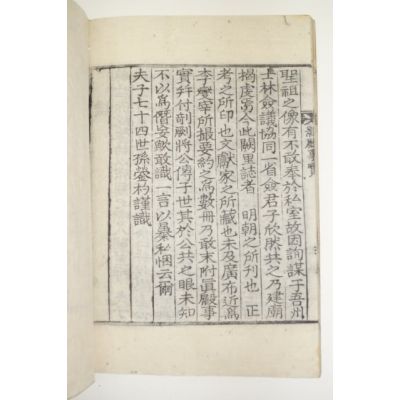 聖祖之像有不敢奉於私室故因詢謀于吾州
士林僉議協同一省僉君子欣然共之乃建廟
揭虔焉今此闕里誌者 明朝之所刊也 正
考之所印也文獻家之所藏也未及廣布近爲
李 宰所撮要約之爲數冊乃敢末附眞殿事
實幷付剞劂將公傳于世其於公共之眼未知
不以爲僭妄歟敢識一言以暴私悃云爾
夫子七十四世孫 杓謹識